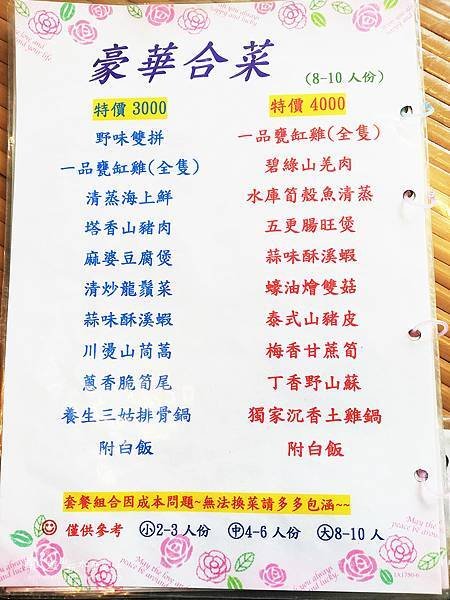 豪華合菜 (8-10 人份)
特價 3000
野味雙拼
一品甕缸雞(全隻)
清蒸海上鮮
塔香山豬肉
麻婆豆腐煲
清炒龍鬚菜
蒜味酥溪蝦
川燙山茼蒿
蔥香脆筍尾
養生三姑排骨鍋
附白飯
特價 4000
一品甕缸雞(全隻)
碧綠山羌肉
水庫筍殼魚清蒸
五更腸旺煲
蒜味酥溪蝦
蠔油燴雙菇
泰式山豬皮
梅香甘蔗筍
丁香野山蘇
獨家沉香土雞鍋
附白飯
套餐組合因成本問題~無法換菜請多多包涵~~
僅供參考 小2-3 人份 中4-6 人份 大8-10 人